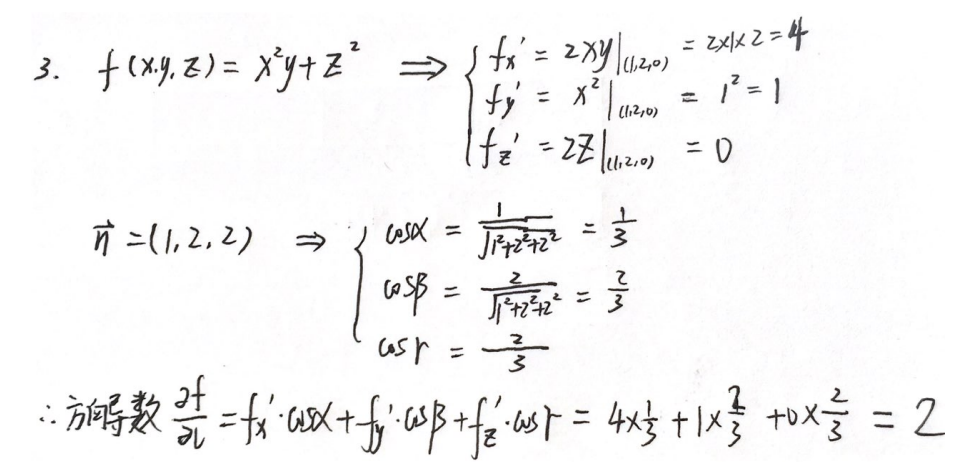 3. f(x,y,z) = x²y+z² ⟹ { fx' = 2xy|(1,2,0) = 2×1×2=4
fy' = x²|(1,2,0) = 1² = 1
fz' = 2z|(1,2,0) = 0
n⃗ =(1,2,2) ⇒ { cosα = 1/√(1²+2²+2²) = 1/3
cosβ = 2/√(1²+2²+2²) = 2/3
cosγ = 2/3
∴方向导数 ∂f/∂l = fx'·cosα+fy'·cosβ+fz'·cosγ = 4×1/3 +1×2/3 +0×2/3 = 2